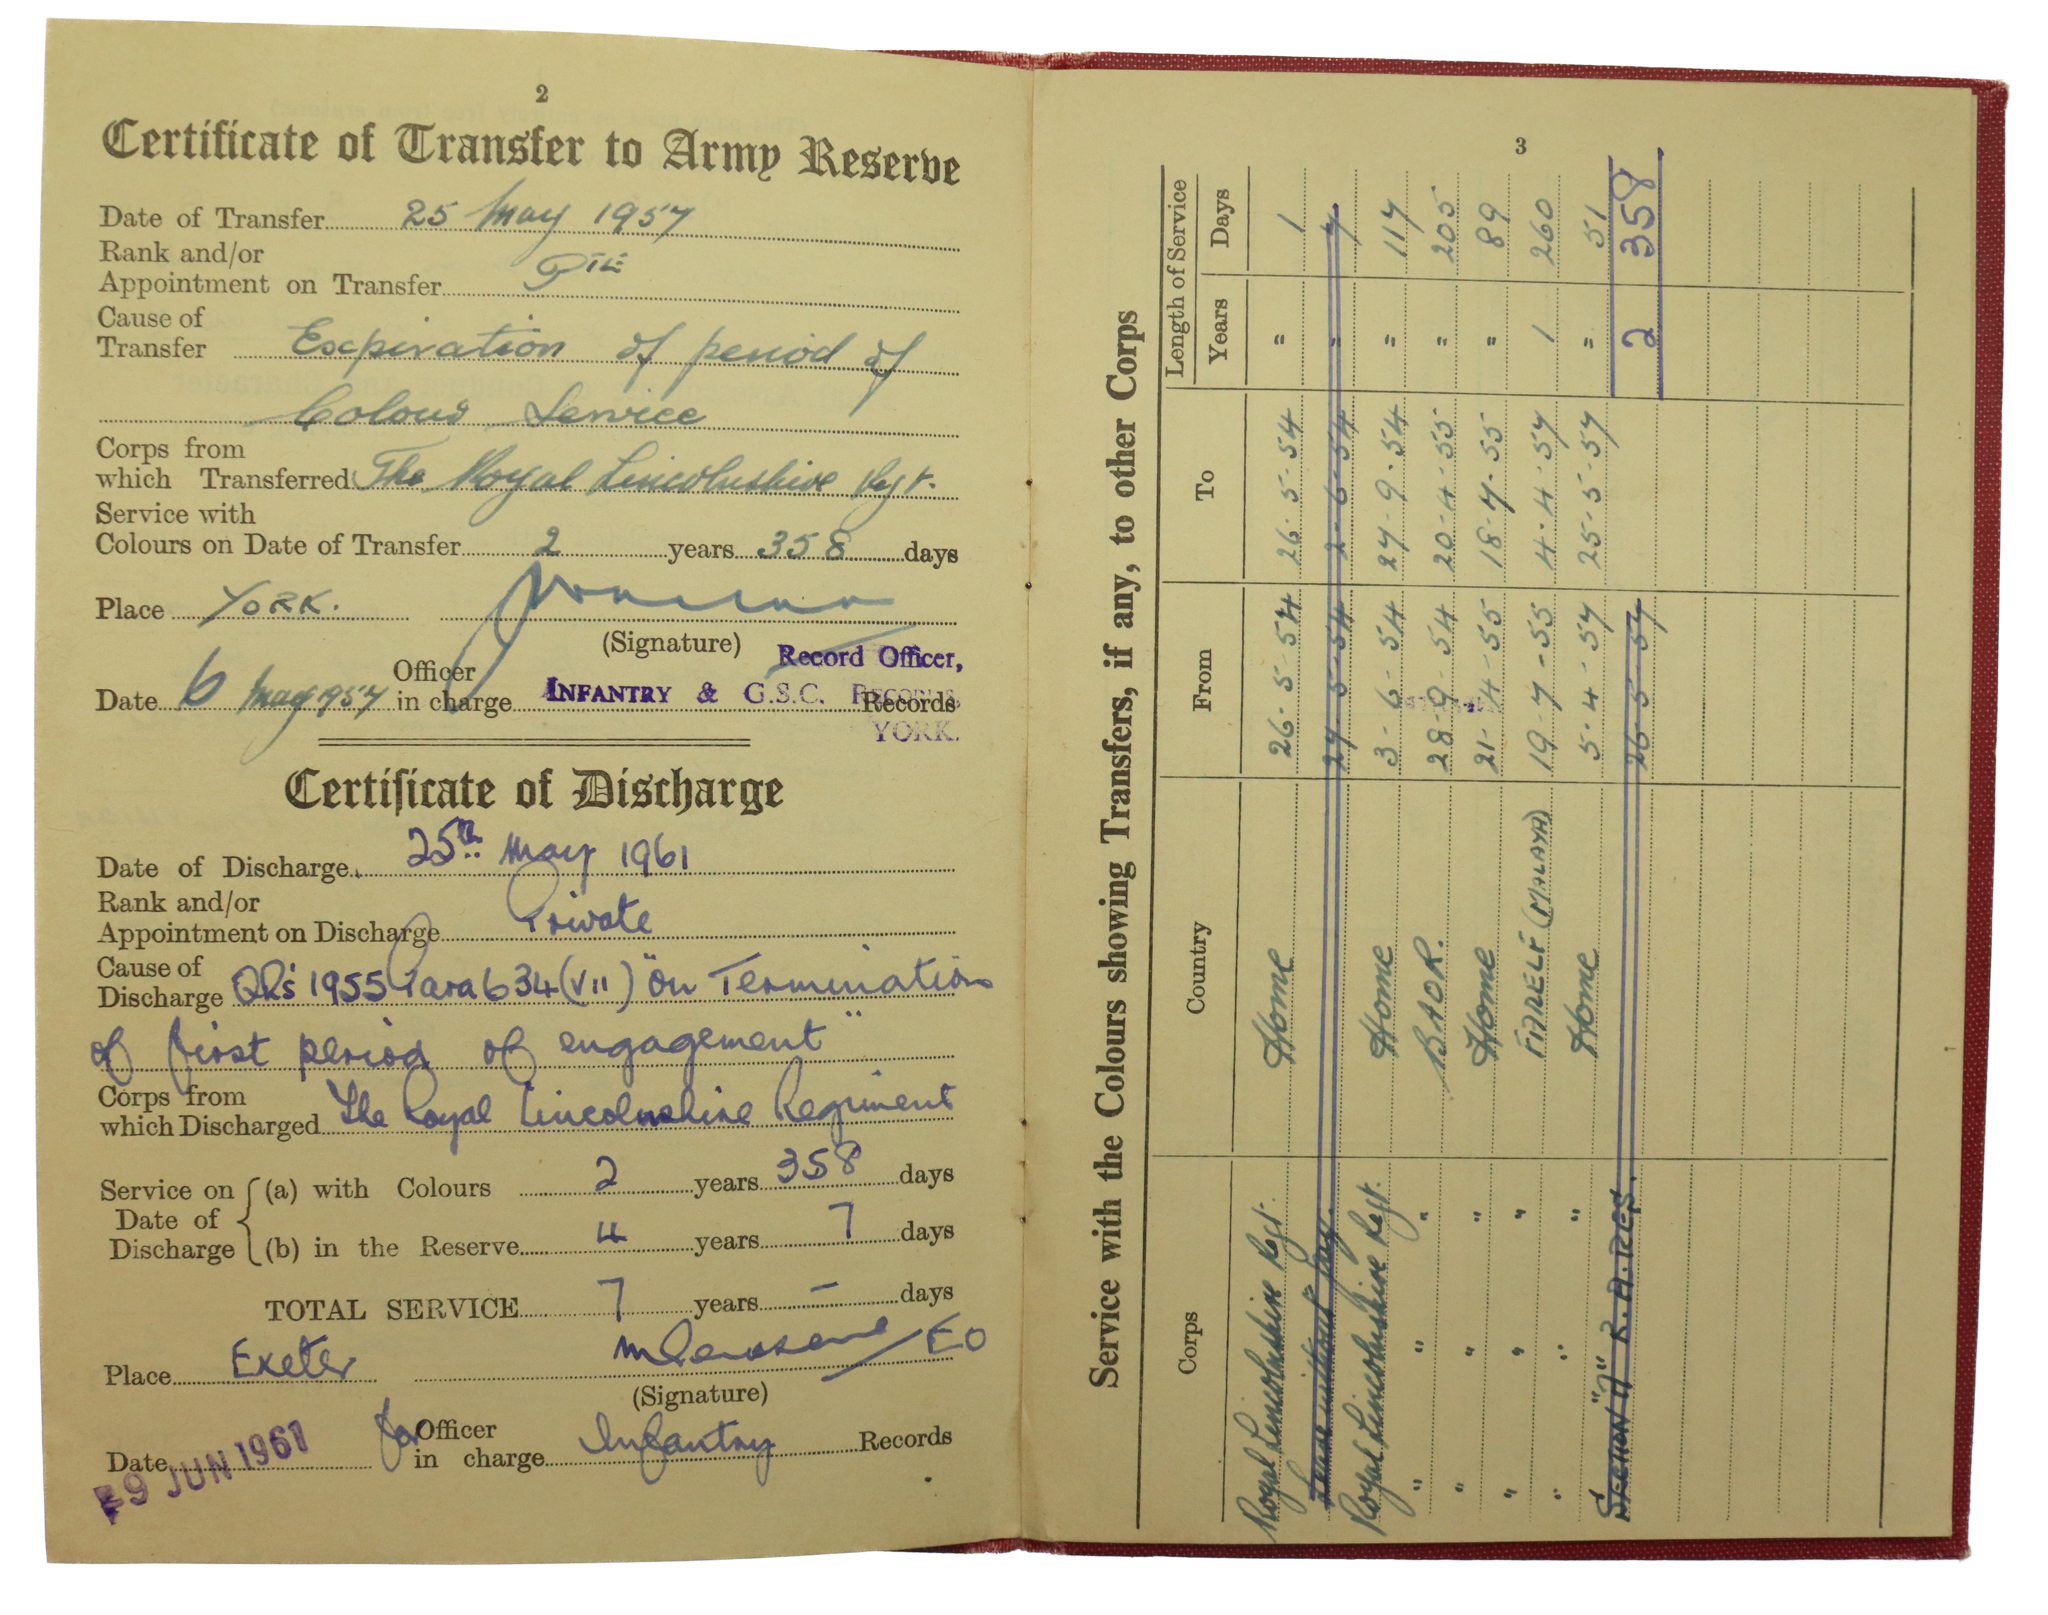 2
Certificate of Transfer to Army Reserve
Date of Transfer 25 May 1957
Rank and/or
Appointment on Transfer PTE
Cause of
Transfer Expiration of period of
Colour Service
Corps from
which Transferred The Royal Lincolnshire Regt.
Service with
Colours on Date of Transfer 2 years 358 days
Place YORK.
(Signature)
Record Officer,
Officer
Date 6 May 1957 in charge INFANTRY & G.S.C. RECORDS, Records
YORK.
Certificate of Discharge
Date of Discharge 25th May 1961
Rank and/or
Appointment on Discharge Private
Cause of
Discharge QRs 1955 Para 634 (VII) "On Termination
of first period of engagement"
Corps from
which Discharged The Royal Lincolnshire Regiment
Service on (a) with Colours 2 years 358 days
Date of
Discharge (b) in the Reserve 4 years 7 days
TOTAL SERVICE 7 years – days
Place Exeter EO
(Signature)
for Officer
Date 9 JUN 1961 in charge Infantry Records
3
Service with the Colours showing Transfers, if any, to other Corps
Corps Country From To Length of Service
Years Days
Royal Lincolnshire Regt. Home 26-5-54 26-5-54 = 1
Leave without pay. 27-5-54 2-6-54 = 7
Royal Lincolnshire Regt. Home 3-6-54 27-9-54 = 117
" " " B.A.O.R. 28-9-54 20-4-55 = 205
" " " Home 21-4-55 18-7-55 = 89
" " " FARELF (MALAYA) 19-7-55 4-4-57 1 260
" " " Home 5-4-57 25-5-57 = 51
SECTION "A" R.A.RES. 26-5-57 2 358